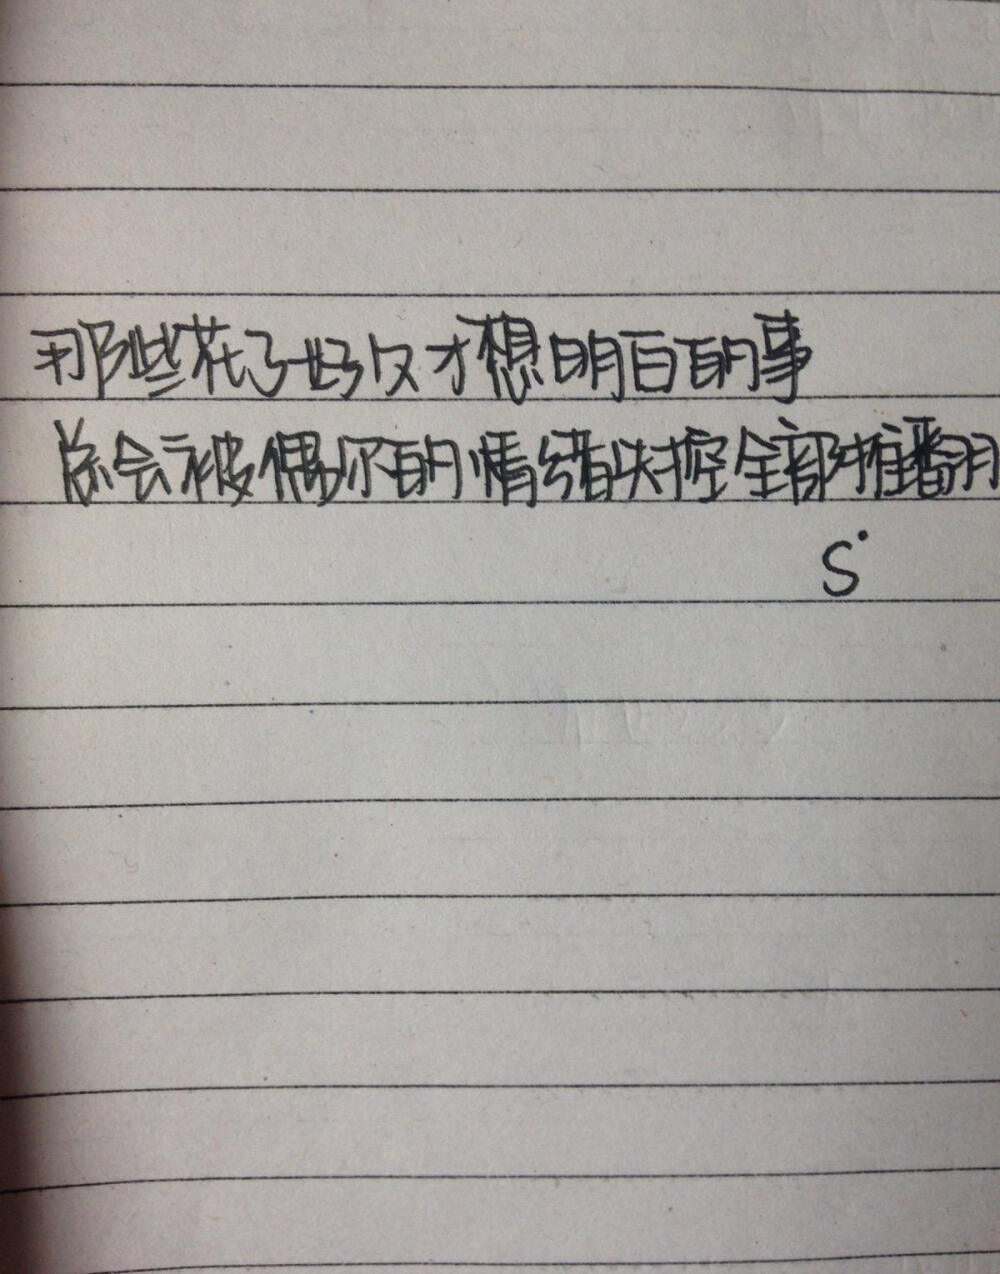 那些花了好久才想明白的事
总会被偶尔的情绪失控全部推翻
S.